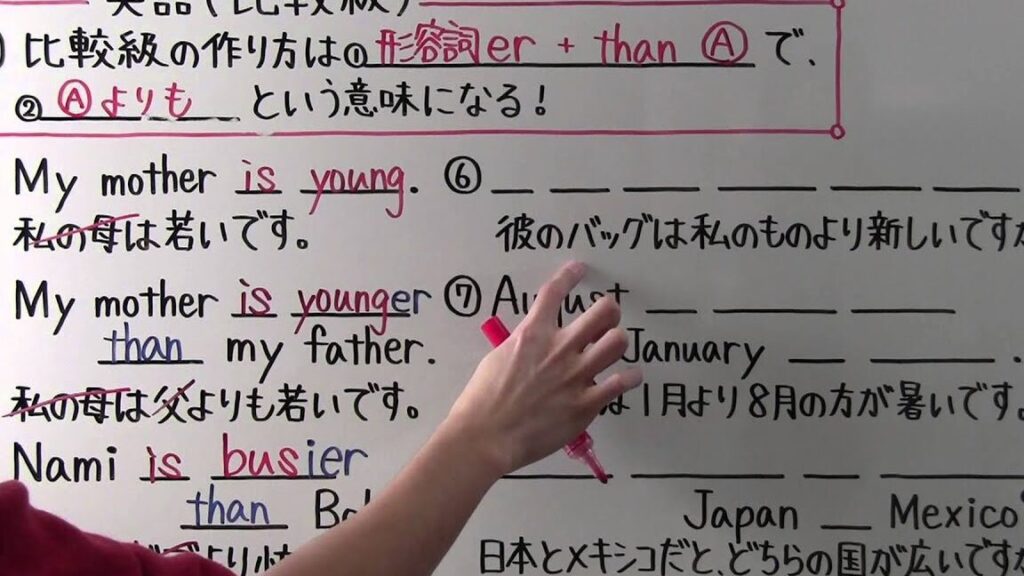 英語(比較級)
比較級の作り方は①形容詞er + than Ⓐ で、
②Ⓐよりも という意味になる!
My mother is young.
私の母は若いです。
My mother is younger
than my father.
私の母は父よりも若いです。
Nami is busier
than
より
⑥
彼のバッグは私のものより新しいですか
⑦August
January .
は1月より8月の方が暑いです。
Japan Mexico
日本とメキシコだと、どちらの国が広いですか